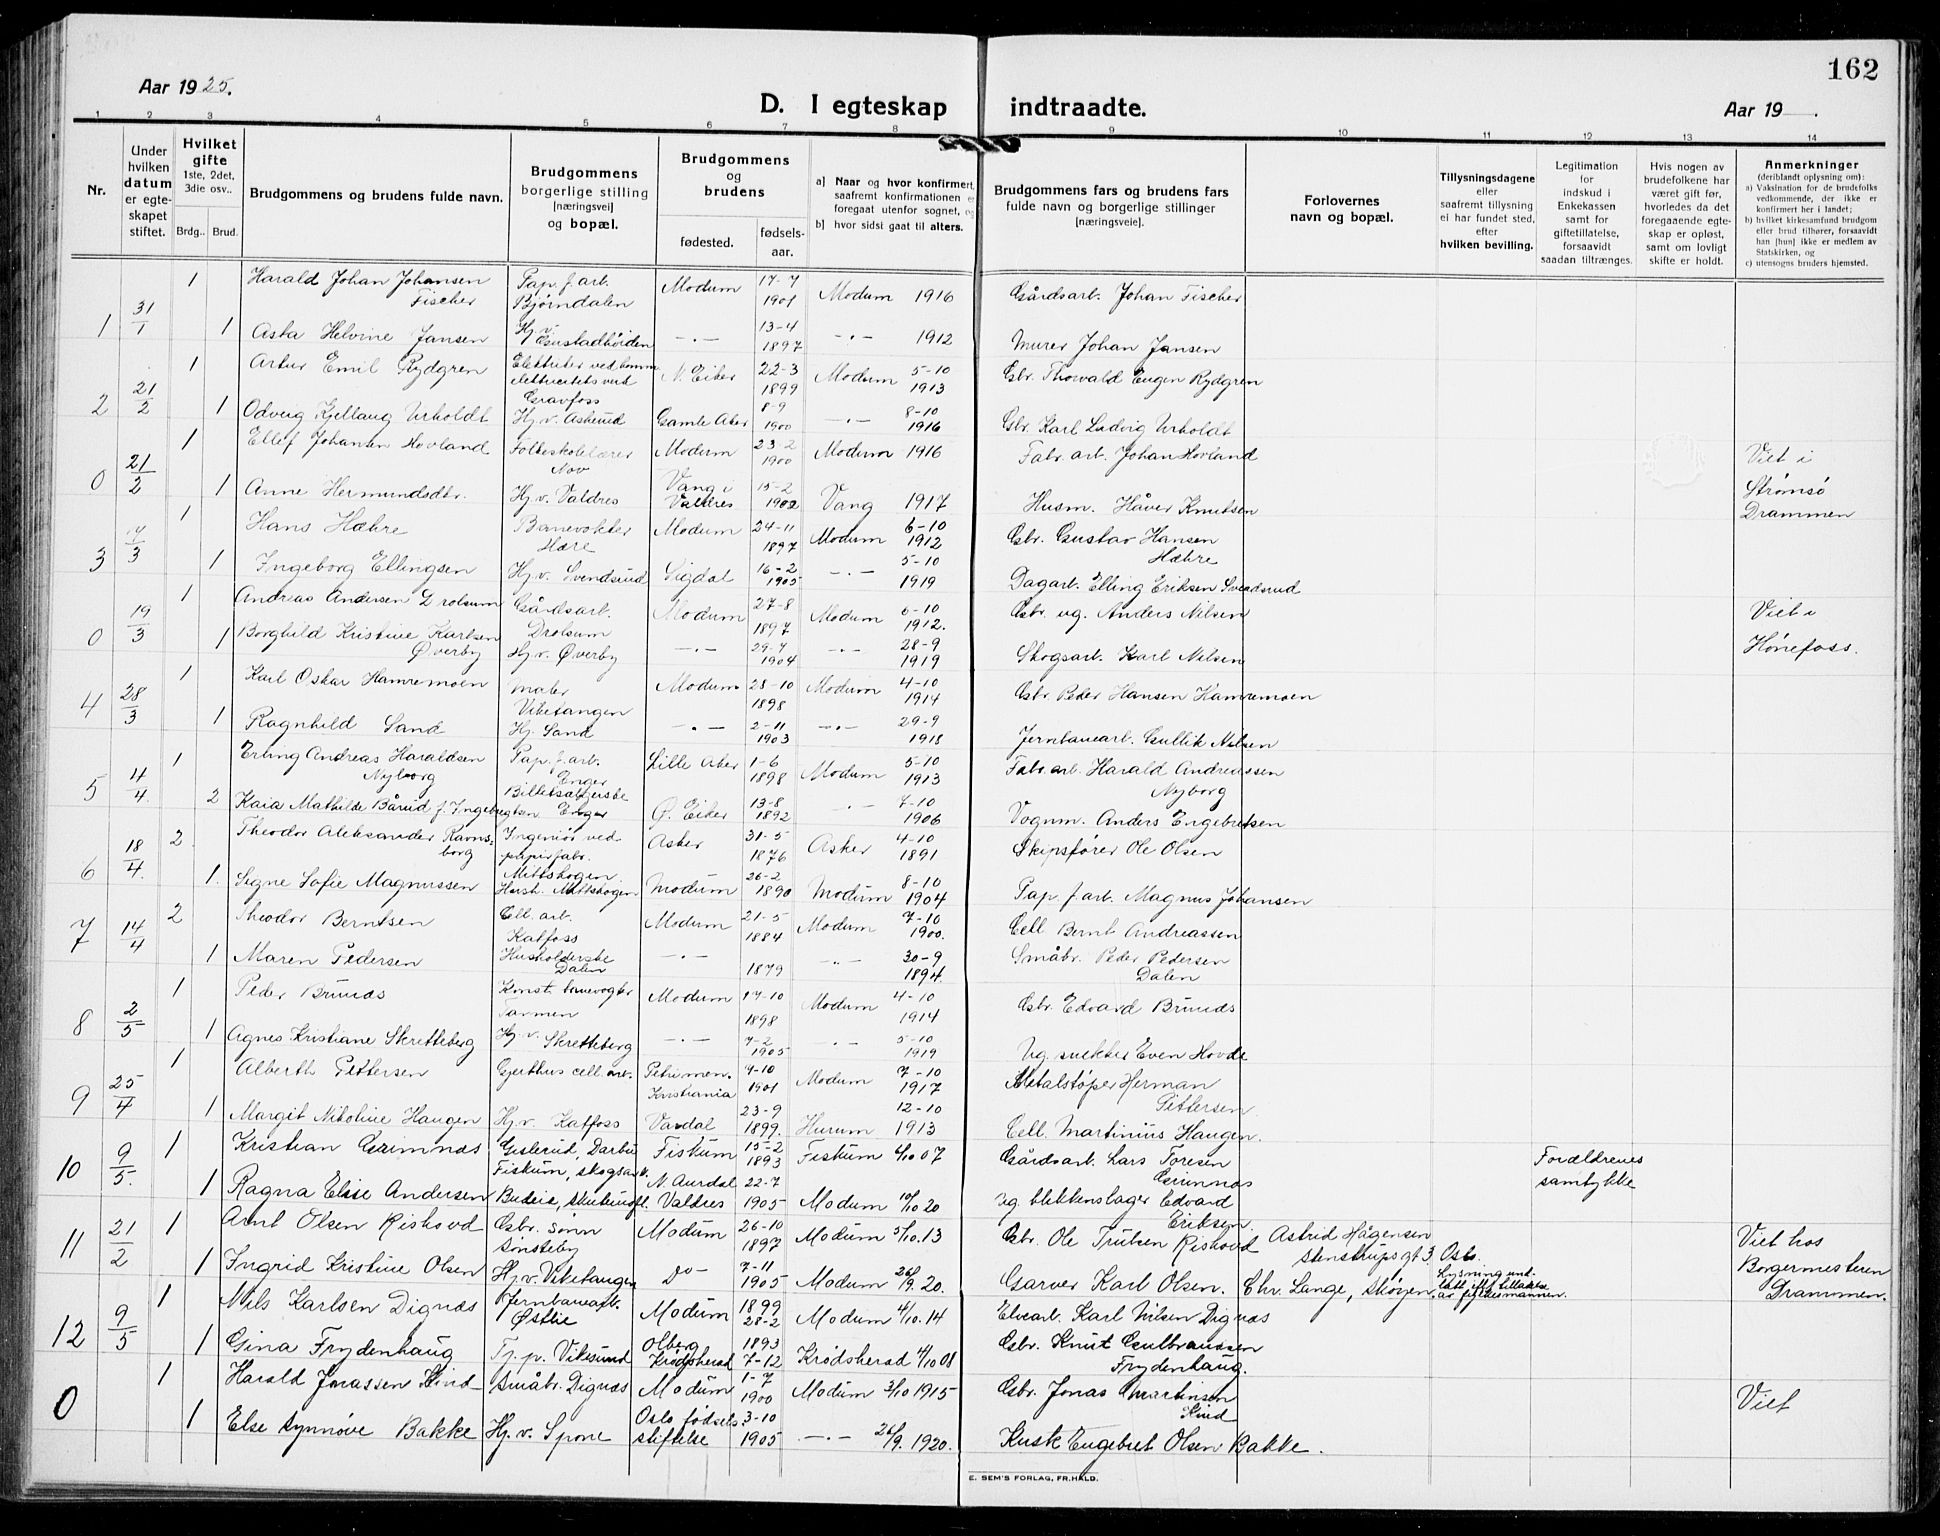 162
Aar 1925.
D. I egteskap indtraadte.
Aar 19 .
1 2 3 4 5 6 7 8 9 10 11 12 13 14
Nr.
Under hvilken datum er egteskapet stiftet.
Hvilket gifte 1ste, 2det, 3die osv..
Brdg.. Brud.
Brudgommens og brudens fulde navn.
Brudgommens borgerlige stilling [næringsvei] og bopæl.
Brudgommens og brudens
fødested. fødsels-aar.
a] Naar og hvor konfirmert, saafremt konfirmationen er foregaat utenfor sognet, og
b] hvor sidst gaat til alters.
Brudgommens fars og brudens fars fulde navn og borgerlige stillinger [næringsveie].
Forlovernes navn og bopæl.
Tillysningsdagene eller saafremt tillysning ei har fundet sted, efter hvilken bevilling.
Legitimation for indskud i Enkekassen samt for giftetillatelse, forsaavidt saadan tiltrænges.
Hvis nogen av brudefolkene har været gift før, hvorledes da det foregaaende egteskap er opløst, samt om lovligt skifte er holdt.
Anmerkninger (deriblandt oplysning om):
a) Vaksination for de brudefolks vedkommende, der ikke er konfirmert her i landet;
b) hvilket kirkesamfund brudgom eller brud tilhører, forsaavidt han [hun] ikke er medlem av Statskirken, og
c) utensogns bruders hjemsted.
1 31/1 1 Harald Johan Johansen Fischer Pap. f. arb. Bjørndalen Modum 17-7 1901 Modum 1916 Gårdsarb. Johan Fischer
1 Asta Helvine Jansen Hj. v. Gustadhøiden -"- 13-4 1897 -"- 1912 Murer Johan Jansen
2 21/2 1 Artur Emil Rydgren Gravfoss N. Eiker 22-3 1899 Modum 5-10 1913 Gbr. Thorvald Eugen Rydgren
1 Odveig Kjellaug Urholdt Hj. v. Askerud Gamle Aker 8-9 1900 -"- 8-10 1916 Gbr. Karl Ludvig Urholdt
0 21/2 1 Ellef Johansen Hovland Folkeskolelærer Modum 23-2 1900 Modum 1916 Fabr. arb. Johan Hovland Viet i
1 Anne Hermundsdtr. Hj. v. Valdres Vang i Valdres 15-2 1902 Vang 1917 Husm. Håver Knutsen Strømsø Drammen
3 /3 1 Hans Hæhre Banevokter Hære Modum 24-11 1897 Modum 6-10 1912 Gbr. Gustav Hansen Hæhre
1 Ingeborg Ellingsen Hj. v. Svendsrud Sigdal 16-2 1905 -"- 5-10 1919 Dagarb. Elling Eriksen Svendsrud
0 19/3 1 Andreas Andersen Drolsum Gårdsarb. Drolsum Modum 27-8 1897 Modum 6-10 1912. Gbr. ug. Anders Nilsen Viet i
1 Borghild Kristine Karlsen Øverby Hj. v. Øverby -"- 29-7 1904 -"- 28-9 1919 Skogsarb. Karl Nilsen Hønefoss.
4 28/3 1 Karl Oskar Hamremoen Maler Viketangen Modum 28-10 1898 Modum 4-10 1914 Gbr. Peder Hansen Hamremoen
1 Ragnhild Sand Hj. Sand -"- 2-11 1903 -"- 29-9 1918 Jernbanearb. Gullik Nilsen
5 4/4 1 Erling Andreas Haraldsen Nyborg Pap. f. arb. Enger Lille Aker 1-6 1898 Modum 5-10 1913 Fabr. arb. Harald Andreassen Nyborg
2 Kaia Mathilde Bårud f. Ingebregtsen Enger Ø. Eiker 13-8 1892 -"- 7-10 1906 Vognm. Anders Engebretsen
6 18/4. 2 Theodor Aleksander Ravnsborg Ingeniør ved papirfabr. Mittskogen Asker 31-5 1876 Asker 4-10 1891 Skipsfører Ole Olsen
1. Signe Sofie Magnussen Mittskogen Modum 26-2 1890 Modum 8-10 1904 Pap. f. arb. Magnus Johansen
7 14/4 2 Theodor Berntsen Cell. arb. Katfoss Modum 21-5 1884 Modum 7-10 1900. Cell Bernt Andreassen
1 Maren Pedersen Husholderske Dalen -"- 1879 -"- 30-9 1894. Småbr. Peder Pedersen Dalen
8 2/5 1 Peder Brunås Konst. banevogter Modum 17-10 1898 Modum 4-10 1914 Gbr. Edvard Brunås
1 Agnes Kristiane Skretteberg Hj. v. Skretteberg -"- 7-2 1905 -"- 5-10 1919 Ug. snekker Even Hovde
9 25/4 1 Alberth Pettersen Gjerthus cell. arb. Kristiania 4-10 1901 Modum 7-10 1917 Metalstøper Herman Pettersen
1 Margit Nikoline Haugen Hj. v. Katfoss Vardal 23-9 1899. Hurum 12-10 1913 Cell. Martinius Haugen.
10 9/5. 1 Kristian Grimnæs Gislerud, Darbu Fiskum, skogsarb. Fiskum 15-2 1893 Fiskum 6/10 07 Gårdsarb. Lars Toresen Grimnæs Forældrenes samtykke
1 Ragna Elise Andersen N. Aurdal Valdres 22-7 1905 Modum 10/10 20 ug blikkenslager Edvard Eriksen.
11 21/2 1 Arnt Olsen Riskovd Gbr. sønn Sønsteby Modum 26-10 1897 Modum 5/10.13 Gbr. Ole Trulsen Riskovd Astrid Hågensen Stenstrupsgt 3 Oslo. Viet hos
1 Ingrid Kristine Olsen Hj. v. Viketangen Do- 7-11 1905 Modum 26/9. 20. Garver Karl Olsen. Chr. Lange, Skøyen. Borgermesteren Drammen.
12 9/5 1 Nils Karlsen Dignæs Jernbanearb. Østlie Modum 1899 28-2 Modum 4/10.14 Elvearb. Karl Nilsen Dignæs
1 Gina Frydenhaug Tj. p. Vikesund Olberg Krødsherad 1893 7-12 Krødsherad 4/10 08 Gbr. Knut Gulbrandsen Frydenhaug.
0 1 Harald Jonassen Kind Småbr. Dignæs Modum 1-7 1900 Modum 3/10 1915 Gbr. Jonas Martinsen Kind Viet
1 Else Synnøve Bakke Hj. v. Spone Oslo fødselsstiftelse 3-10 1905 -"- 26/9. 1920. Kusk Engebret Olsen Bakke.
E. SEM'S FORLAG, FR.HALD.